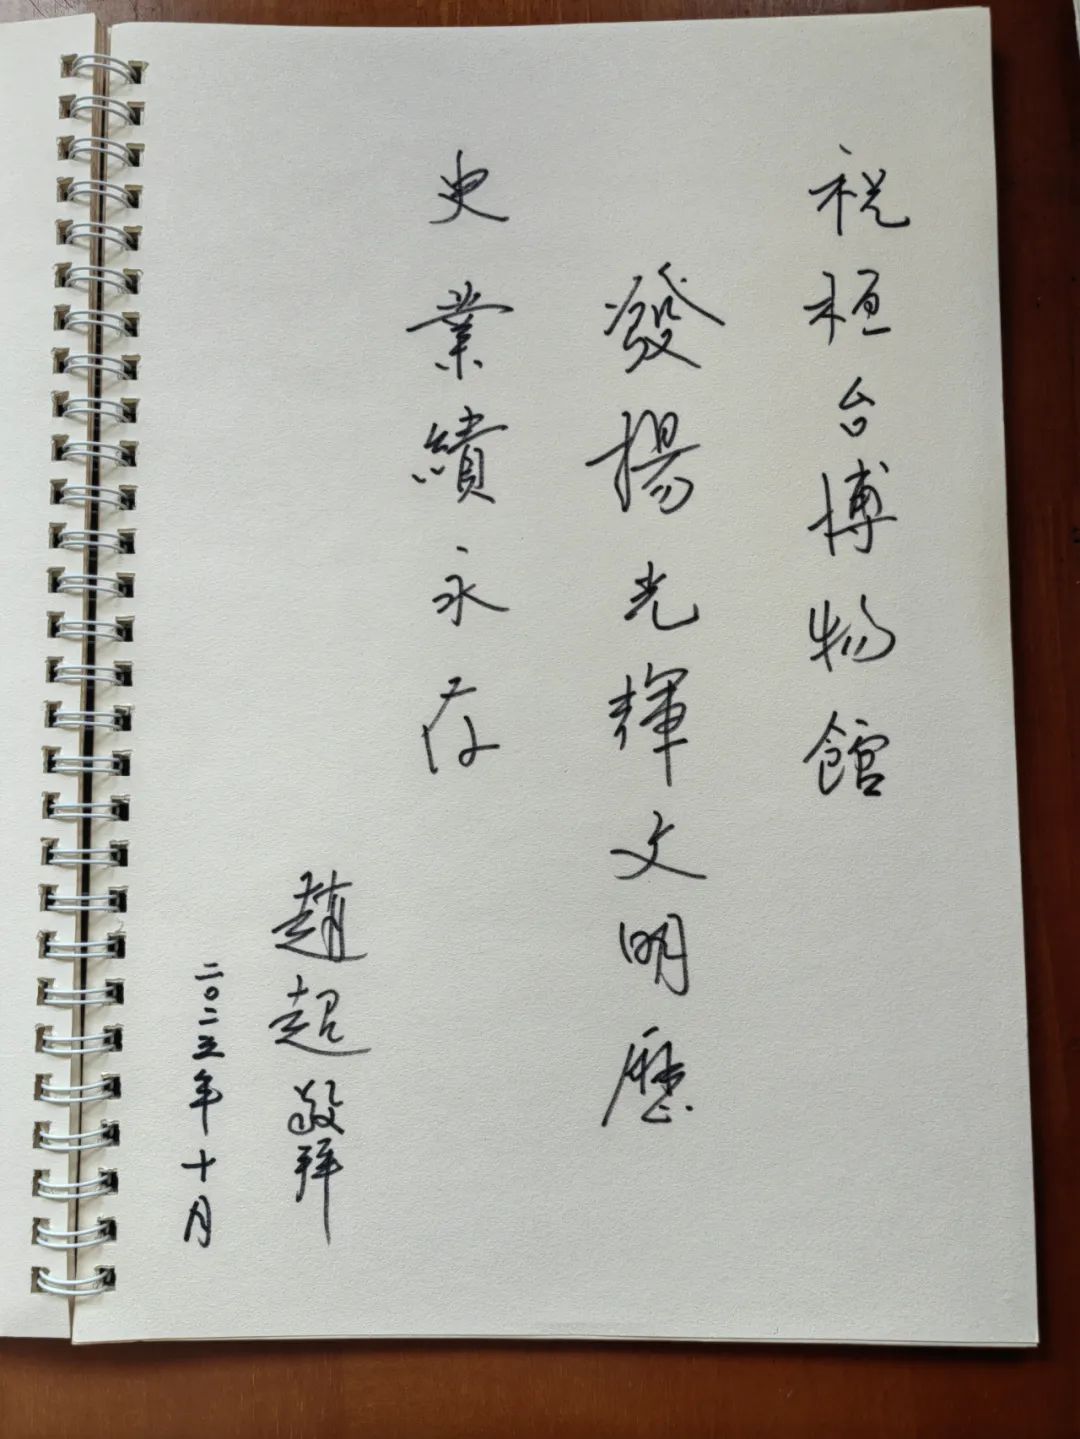 祝桓台博物館
發揚光輝文明歷
史業績永存
趙超敬拜
二〇二三年十月